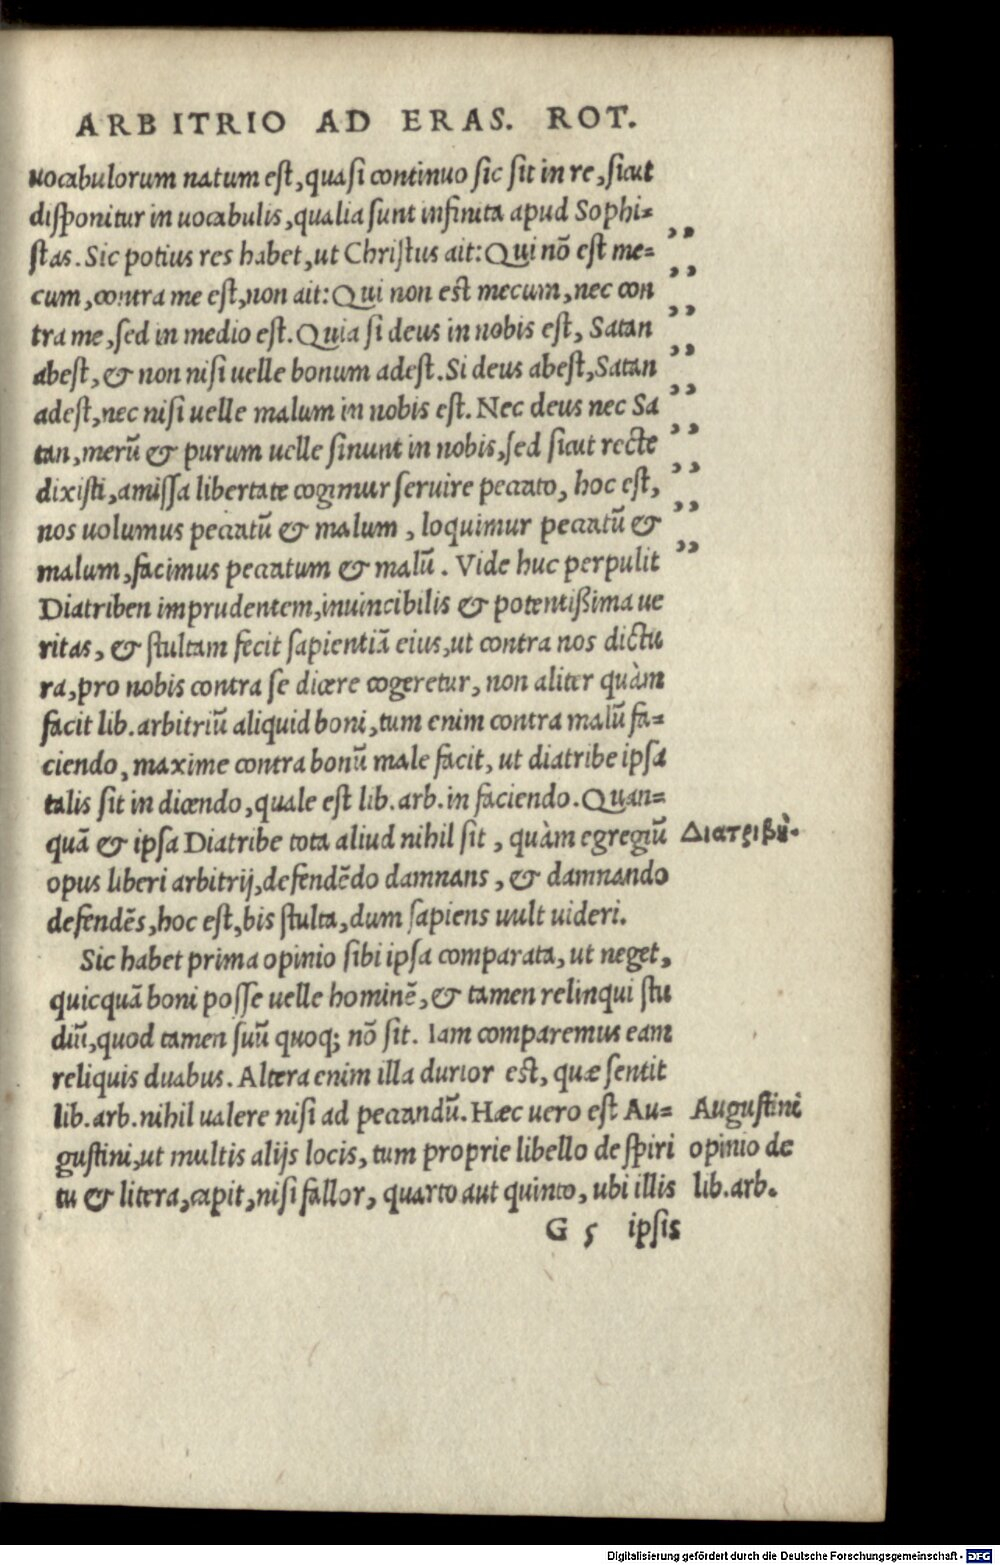 ARBITRIO AD ERAS. ROT.
uocabulorum natum est, quasi continuo sic sit in re, sicut
disponitur in uocabulis, qualia sunt infinita apud Sophi=
stas. Sic potius res habet, ut Christus ait: Qui nō est me= ,,
cum, contra me est, non ait: Qui non est mecum, nec con ,,
tra me, sed in medio est. Quia si deus in nobis est, Satan ,,
abest, & non nisi uelle bonum adest. Si deus abest, Satan ,,
adest, nec nisi uelle malum in nobis est. Nec deus nec Sa ,,
tan, merū & purum uelle sinunt in nobis, sed sicut recte ,,
dixisti, amissa libertate cogimur seruire peccato, hoc est, ,,
nos uolumus peccatū & malum, loquimur peccatū & ,,
malum, facimus peccatum & malū. Vide huc perpulit ,,
Diatriben imprudentem, inuincibilis & potentißima ue
ritas, & stultam fecit sapientiā eius, ut contra nos dictu
ra, pro nobis contra se dicere cogeretur, non aliter quàm
facit lib. arbitriū aliquid boni, tum enim contra malū fa=
ciendo, maxime contra bonū male facit, ut diatribe ipsa
talis sit in dicendo, quale est lib. arb. in faciendo. Quan=
quā & ipsa Diatribe tota aliud nihil sit, quàm egregiū
opus liberi arbitrij, defendēdo damnans, & damnando
defendēs, hoc est, bis stulta, dum sapiens uult uideri.
Διατριβὴ.
Sic habet prima opinio sibi ipsa comparata, ut neget,
quicquā boni posse uelle hominē, & tamen relinqui stu
diū, quod tamen suū quoq; nō sit. Iam comparemus eam
reliquis duabus. Altera enim illa durior est, quæ sentit
lib. arb. nihil ualere nisi ad peccandū. Hæc uero est Au=
gustini, ut multis alijs locis, tum proprie libello de spiri
tu & litera, capit, nisi fallor, quarto aut quinto, ubi illis
Augustini
opinio de
lib. arb.
G 5 ipsis
Digitalisierung gefördert durch die Deutsche Forschungsgemeinschaft - DFG